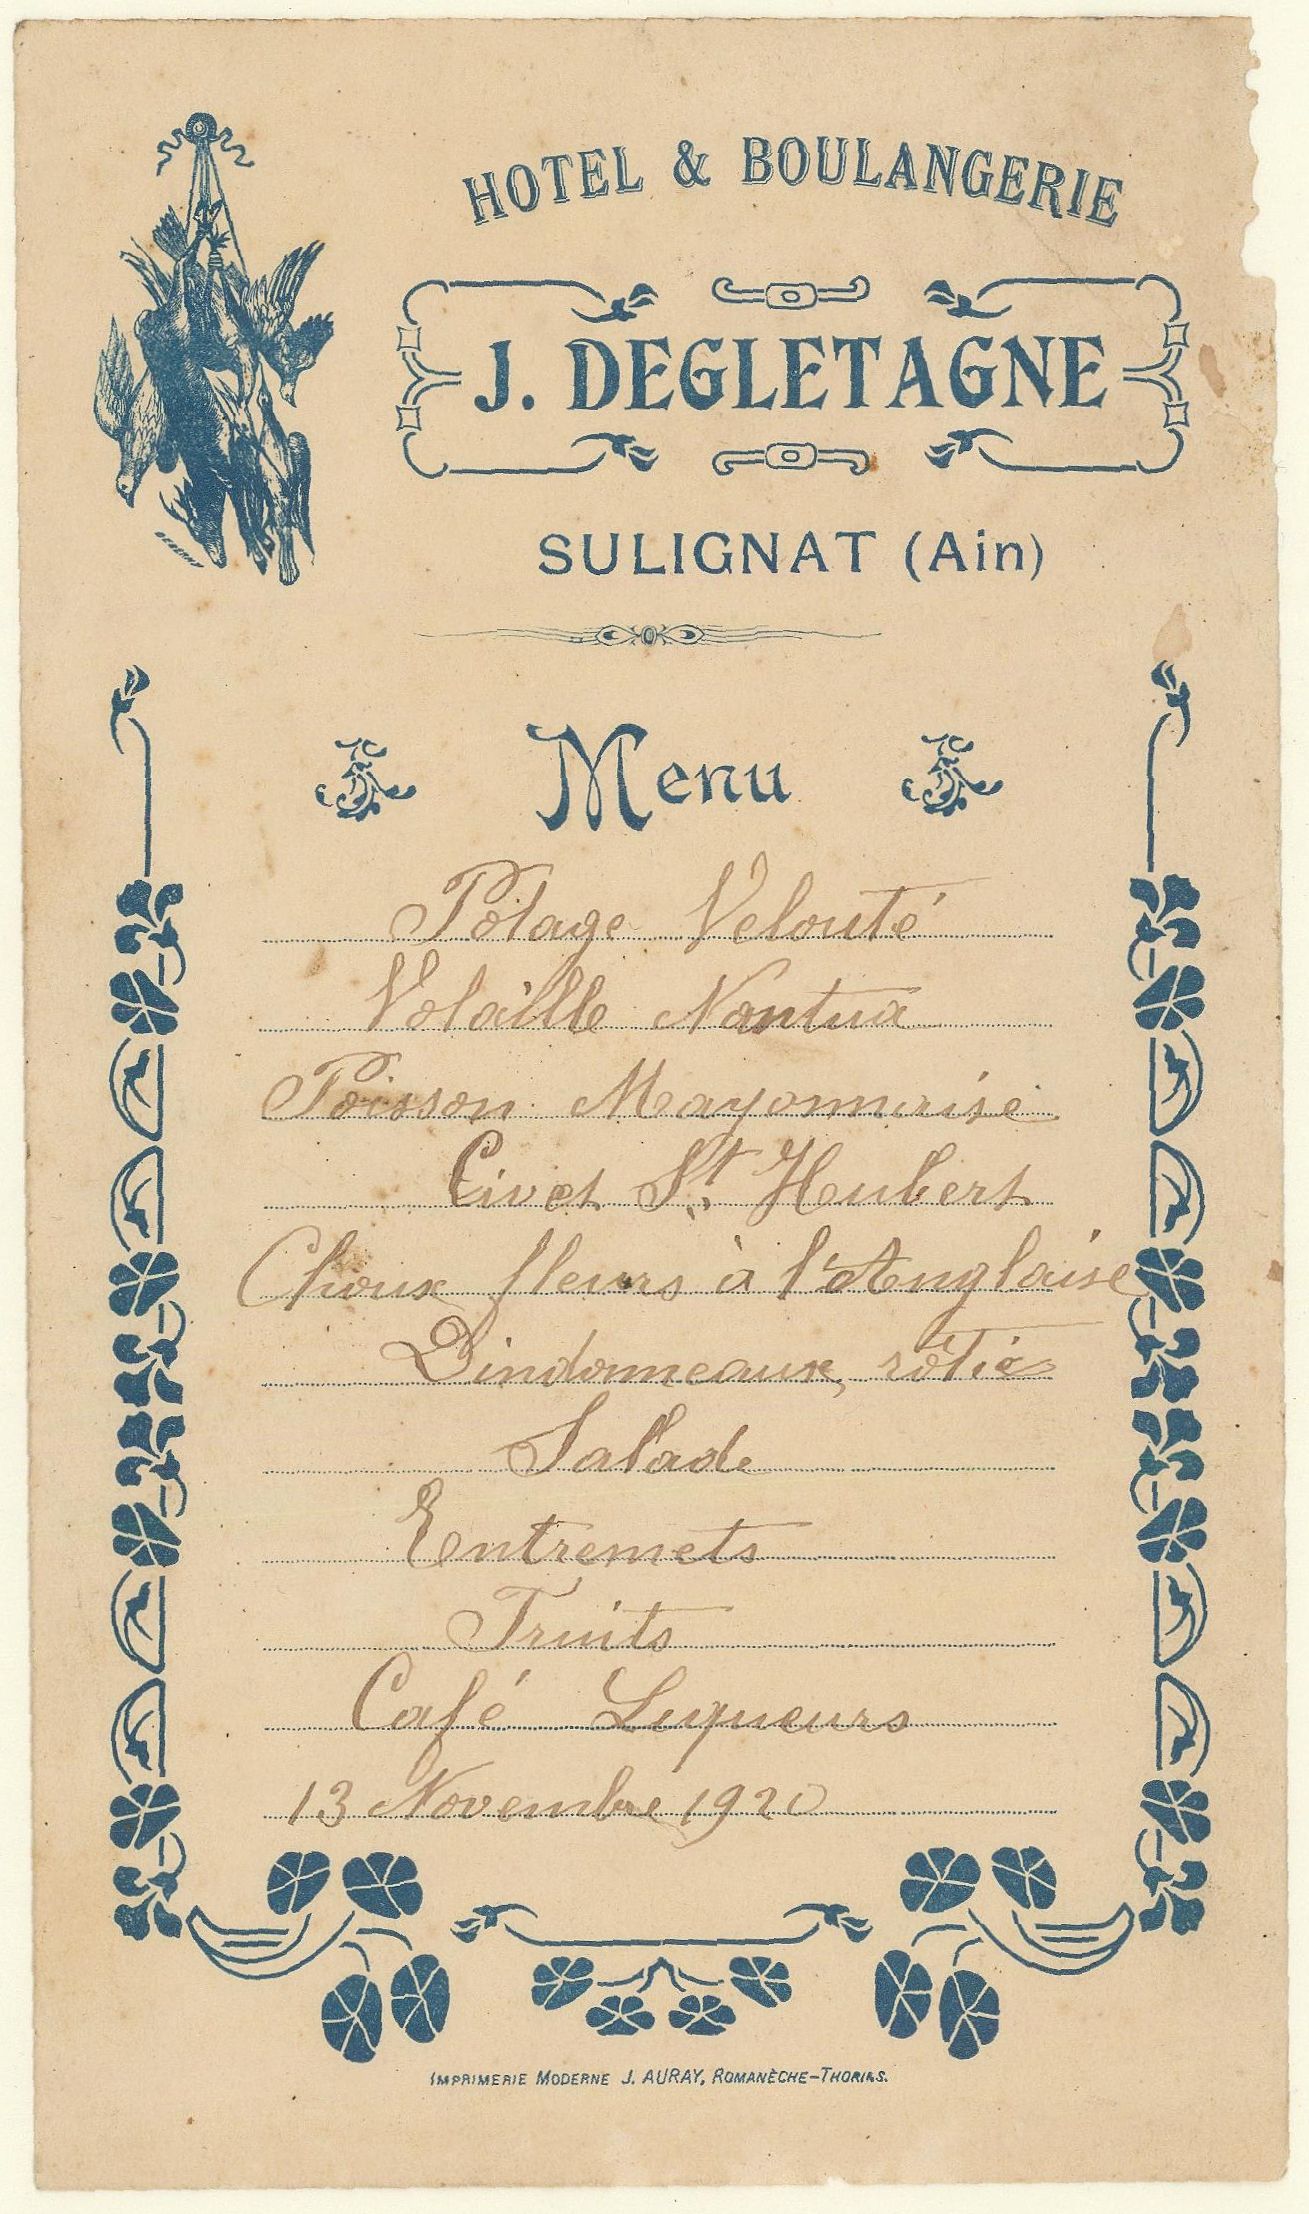 HOTEL & BOULANGERIE
J. DEGLETAGNE
SULIGNAT (Ain)
Menu
Potage Velouté
Volaille Nantua
Poisson Mayonnaise
Civet St Hubert
Choux fleurs à l'Anglaise
Dindonneaux, rôtis
Salade
Entremets
Fruits
Café Liqueurs
13 Novembre 1920
IMPRIMERIE MODERNE J. AURAY, ROMANÈCHE-THORINS.